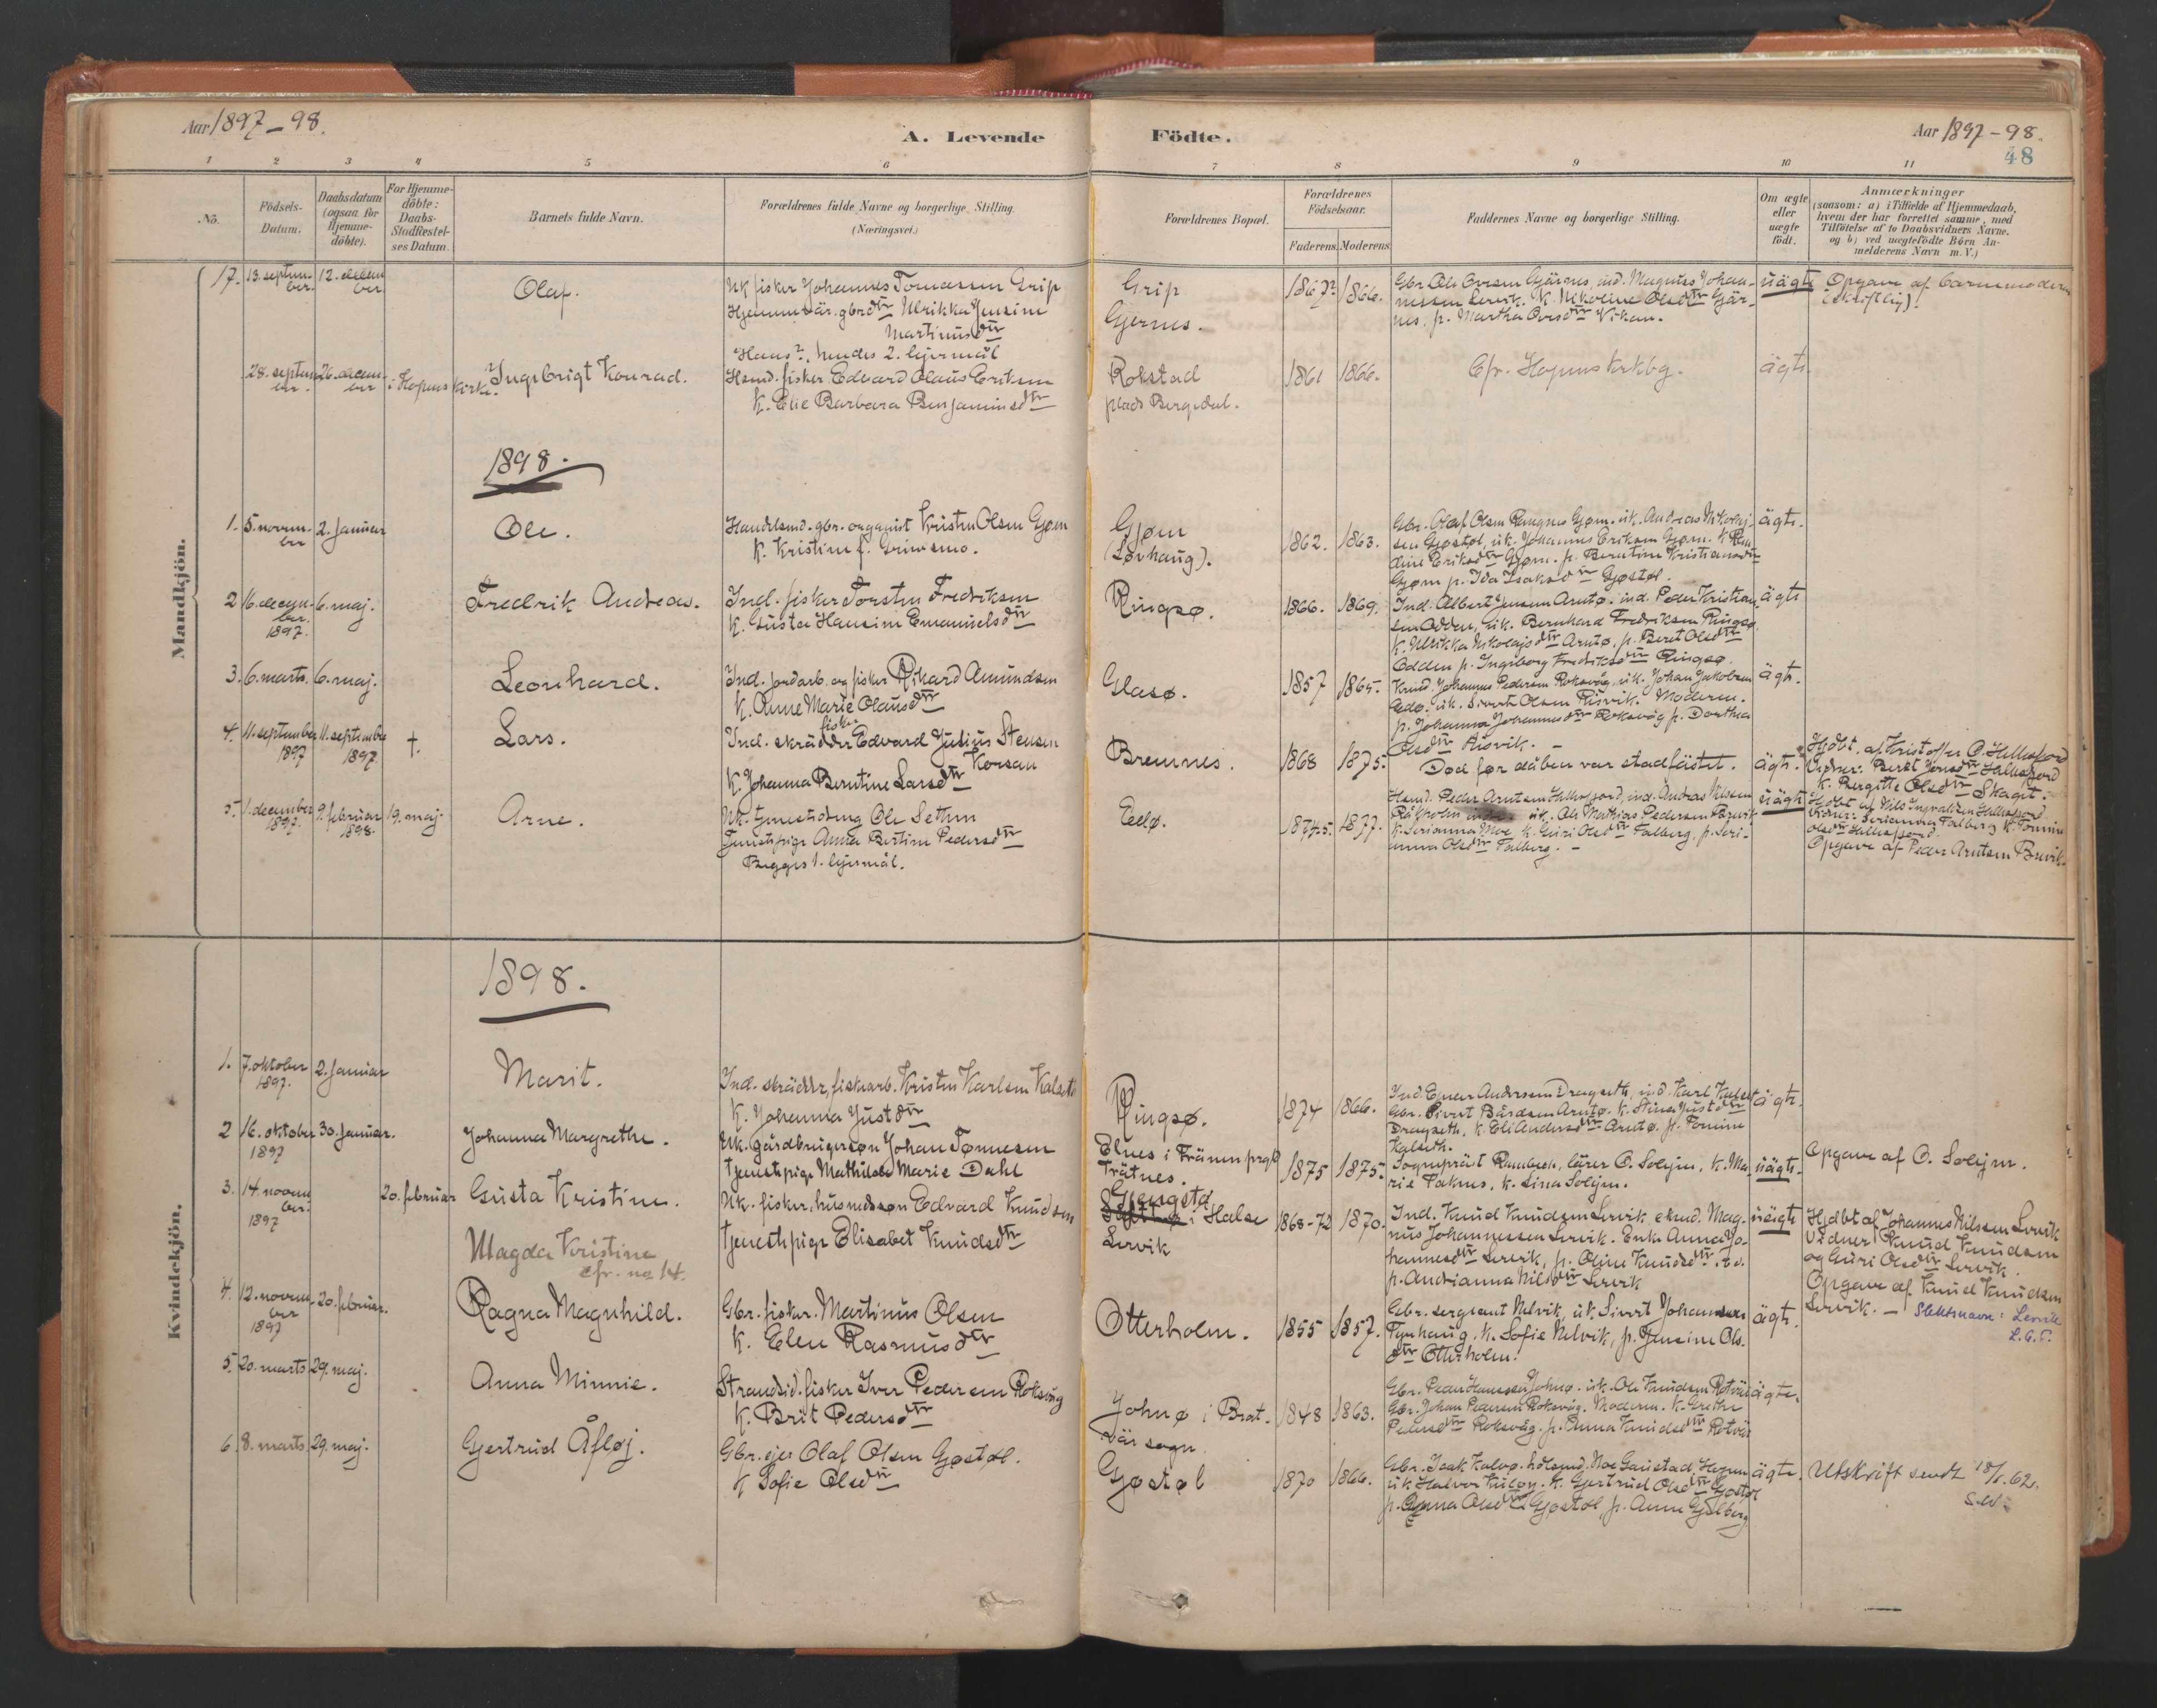 Aar 1897-98.
A. Levende
Födte.
Aar 1897-98.
48
1 2 3 4 5 6 7 8 9 10 11
No.
Födsels-
Datum.
Daabsdatum
(ogsaa for
Hjemme-
döbte).
For Hjemme-
döbte:
Daabs-
Stadfæstel-
ses Datum.
Barnets fulde Navn.
Forældrenes fulde Navne og borgerlige Stilling.
(Næringsvei.)
Forældrenes Bopæl.
Forældrenes
Födselsaar.
Faderens. Moderens.
Faddernes Navne og borgerlige Stilling.
Om ægte
eller
uægte
födt.
Anmærkninger
(saasom: a) i Tilfælde af Hjemmedaab,
hvem der har forrettet samme, med
Tilföielse af to Daabsvidners Navne.
og b) ved uægtefödte Börn An-
melderens Navn m. V.)
Mandkjön.
17. 13. septem-
ber.
12. decem
ber
Olaf.
Uk fisker Johannes Tomassen Grip
Hjemmevär. gbrdtr Ulrikka Jensine
Martinusdtr
Hans?, hendes 2. lejermål
Grip
Gjernes.
1867? 1866.
Gbr. Ole Oversen Gjärnes, ind. Magnus Johan-
nessen Lervik. K. Nikoline Olsdtr Gjär-
nes, p. Martha Oversdtr Vikan.
üägte
Opgave af barnemoderen
(skriftlig).
28. septem
ber.
26. decem-
ber
i Hopens kirke.
Ingebrigt Konrad.
Hsmd. fisker Edvard Olaus Eriksen
K. Elie Barbara Benjaminsdtr
Rokstad
plads Bergedal.
1861 1866.
Cfr. Hopens kirkbg.
ägte
1898.
1. 5. novem-
ber
2. januar
Ole.
Handelsmd. gbr. organist Kristen Olsen Gjøen
K. Kristine f. Grimsmo.
Gjøen
(Løvhaug).
1862. 1863.
Gbr. Olaf Olsen Raugnes Gjøen. uk. Andreas Nikolaj-
sen Gjøstøl, uk. Johannes Eriksen Gjøen. K.
dine Eriksdtr Gjøen. p. Berntine Kristiansdtr
Gjøen p. Ida Isaksdtr Gjøstøl.
ägte.
2 16. decem-
ber.
1897.
6. maj.
Fredrik Andreas.
Ind. fisker Torsten Fredriksen
K. Gusta Hansine Emanuelsdtr
Ringsø.
1866. 1869.
Ind. Albert Jensen Arntø. ind. Peder Kristian-
sen Odden, uk. Bernhard Fredriksen Ringsø.
K. Ulrikka Nikolajsdtr Arntø, p. Beret Olsdtr
Odden p. Ingeborg Fredriksdtr Ringsø.
ägte
3. 6. marts. 6. maj.
Leonhard.
Ind. jordarb. og fisker Rikard Amundsen
K. Anne Marie Olausdtr
Glasø.
1857 1865.
Kmd. Johannes Pedersen Roksvåg, uk. Johan Jakobsen
Edø. uk. Sivert Olsen Risvik. Moderen.
p. Johanna Johannesdtr Roksvåg p. Dorthea
Olsdtr Risvik. -
ägte.
4. 11. september
1897
11. september
1897.
†.
Lars.
fisker
Ind. skrädder Edvard Julius Stensen
Korsan
K. Johanna Berntine Larsdtr
Bremnes.
1868 1875.
Død før dåben var stadfästet.
ägte.
Hjdbt. af Kristoffer O. Hellesfjord
Vidner: Beret Jensdtr Hellesfjord
K. Bergitte Olsdtr Skaget.
5. 1. december
1897.
9. februar
1898.
19. maj.
Arne.
Uk. Ole Sethen
Tjenestpige Anna Bertine Pedersdtr
Begges 1. lejermål.
Edø.
1874-5. 1877.
Hsmd. Peder Arntsen Hellesfjord, ind. Andreas Nilsen
uk. Ole Mathias Pedersen Brevik
K. Serianna Moe K. Guri Olsdtr Falberg, p. Seri-
anna Olsdtr Falberg. -
üägte
Hjdbt af Nils Ingvaldsen Hellesfjord.
Vidner: Serianna Falberg K. Tomine
Olsdtr Hellesfjord.
Opgave af Peder Arntsen Brevik.
Kvindekjön.
1898.
1. 7. oktober
1897.
2. januar
Marit.
Ind. skrädder, fiskarb. Kristen Karlsen Kalseth
K. Johanna Justdtr
Ringsø.
1874 1866.
Ind. Ener Andersen Dragseth, ind. Karl Kalset
Gbr. Sivert Bårdsen Arntø. K. Stina Justdtr
Dragseth, K. Eli Andersdtr Arntø. p. Tomine
Kalseth.
ägte.
2 16. oktober
1897
30. januar.
Johanna Margrethe.
Uk. gårdbrugersøn Johan Tønnesen
Tjenestpige Mathilde Marie Dahl
Elnes i Fränen prgd
Trätnes.
1875 1875.
Sogneprästt Rumbech, lärer O. Solejm. K. Ma-
rie Faknes, K. Lina Solejm.
üägte.
Opgave af O. Solejm.
3. 14. novem
ber.
1897
20. februar
Gusta Kristine.
Magda Kristine
cfr. no 14.
Uk. fisker, husmdssøn Edvard Knudsen
Tjenestpige Elisabet Knudsdtr
Gjengstø
i Halse
Lervik
1868-72 1870.
Ind. Knud Knudsen Lervik Magnus
nus Johannessen Lervik. Enke Anna Jo-
hannesdtr Lervik, p. Oline Knudsdtr
p. Andrianna Nilsdtr Lervik
üägte
Hjdbt af Johannes Nilssen Lervik
Vidner Knud Knudsen
og Guri Olsdtr Lervik.
Opgave af Knud Knudsen
Lervik. - Slektsnavn: Lervik
L.G.T.
4. 12. novem-
ber
1897
20. februar.
Ragna Magnhild.
Gbr. fisker. Martinus Olsen
K. Elen Rasmusdtr
Otterholm.
1855 1857.
Gbr. sergeant Nelvik, uk. Sivert Johansen
Tynhaug. K. Sofie Nelvik, p. Jensine Ols-
dtr Otterholm.
ägte.
5. 20. marts 29. maj.
Anna Minnie.
Strandsid. fisker Iver Pedersen Roksvåg
K. Brit Pedersdtr
Johnø i Brat-
vär sogn.
1848 1863.
Gbr. Peder Hanssen Johnø. uk. Ole Knudsen Rotvär
Gbr. Johan Pedersen Roksvåg. Moderen. K. Grethe
Pedersdtr Roksvåg. p. Anna Knudsdtr Rotvär
ägte.
6. 8. marts. 29. maj.
Gertrud Åfløj.
Gbr. ejer Olaf Olsen Gjøstøl.
K Sofie Olsdtr
Gjøstøl
1870 1866.
Gbr. Isak Kalvø. Moe Gaustad, Hopen
uk. Halvor K. Gjertrud Olsdtr Gjøstøl
p. Anna Olsdtr Gjøstøl, p. Anne Gylberg
ägte.
Utskrift sendt 18/1.62.
S.W.